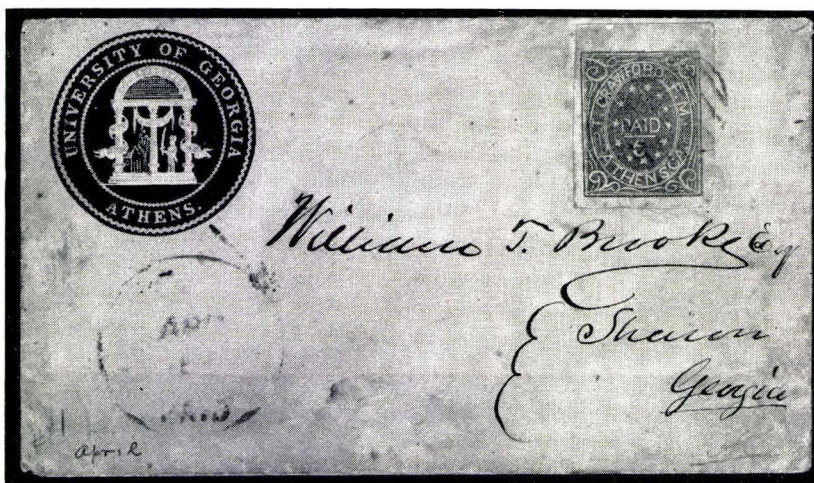 UNIVERSITY OF GEORGIA
ATHENS.
T. CRAWFORD, P.M.
PAID
5
ATHENS GA.
William T. Brooks Esq
Sharon
Georgia
April